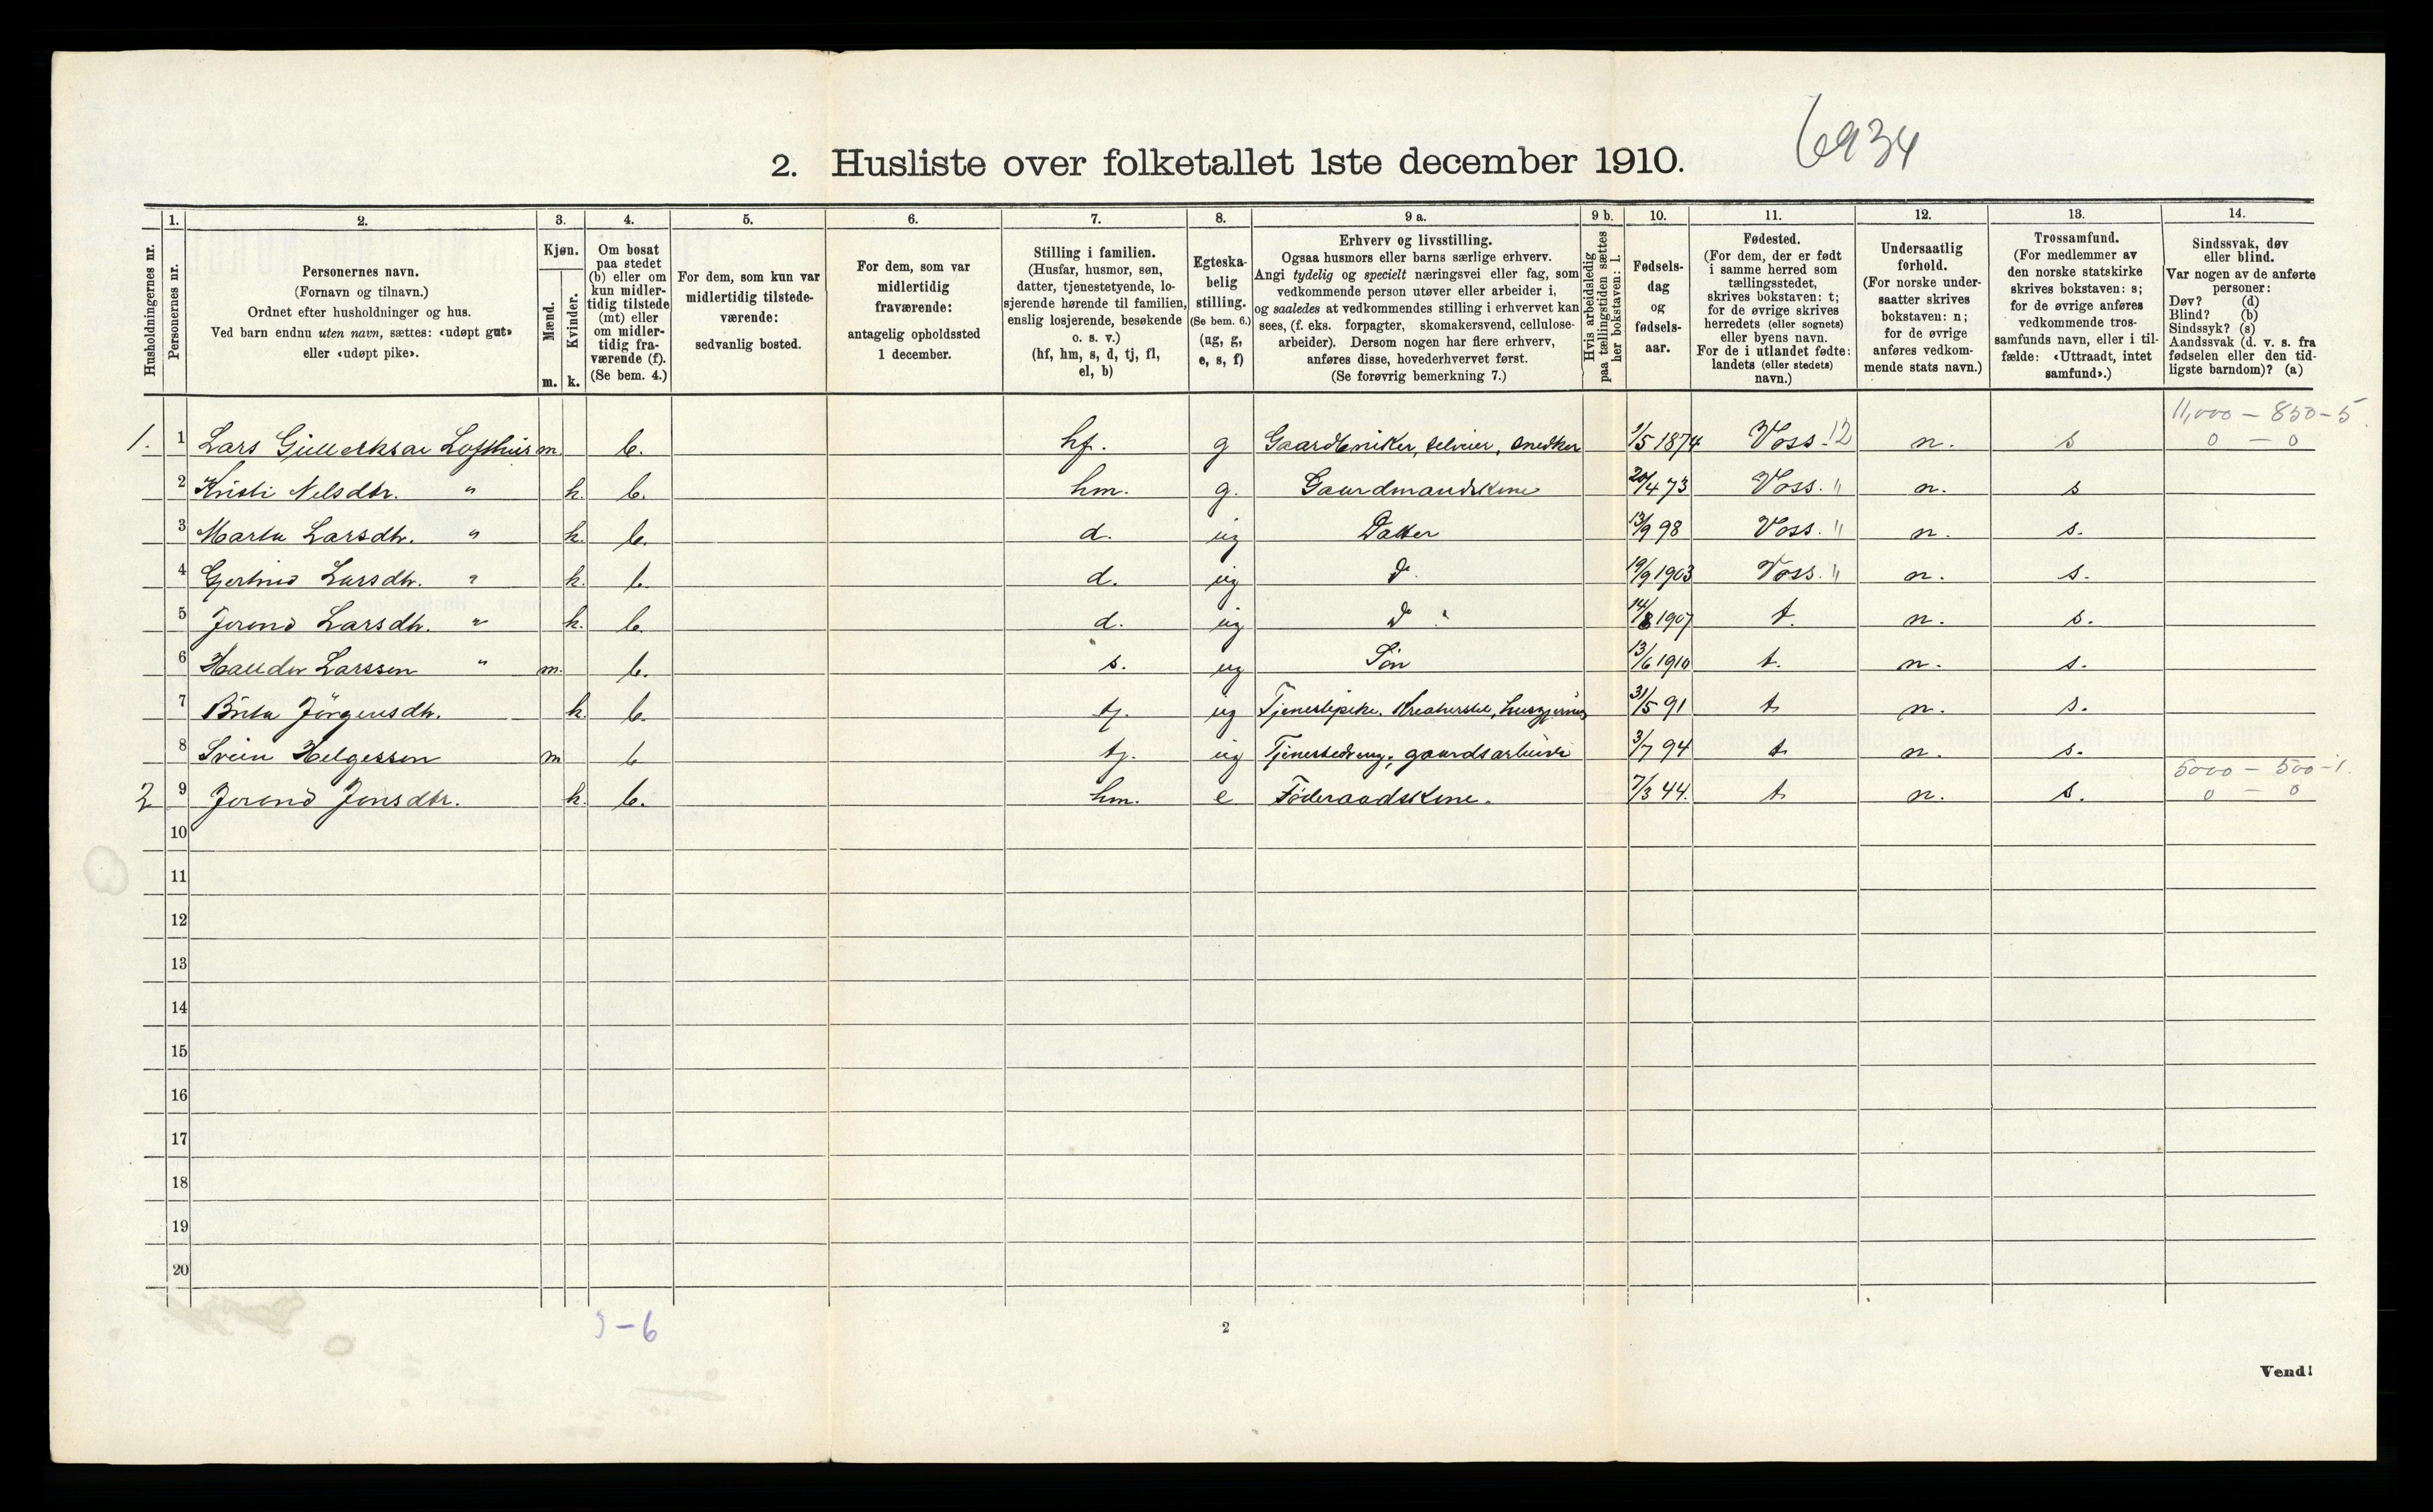 6934
2. Husliste over folketallet 1ste december 1910.
Husholdningernes nr.
1.
Personernes nr.
2.
Personernes navn.
(Fornavn og tilnavn.)
Ordnet efter husholdninger og hus.
Ved barn endnu uten navn, sættes: «udøpt gut»
eller «udøpt pike».
3.
Kjøn.
Mænd.
Kvinder.
m. k.
4.
Om bosat
paa stedet
(b) eller om
kun midler-
tidig tilstede
(mt) eller
om midler-
tidig fra-
værende (f).
(Se bem. 4.)
5.
For dem, som kun var
midlertidig tilstede-
værende:
sedvanlig bosted.
6.
For dem, som var
midlertidig
fraværende:
antagelig opholdssted
1 december.
7.
Stilling i familien.
(Husfar, husmor, søn,
datter, tjenestetyende, lo-
sjerende hørende til familien,
enslig losjerende, besøkende
o. s. v.)
(hf, hm, s, d, tj, fl,
el, b)
8.
Egteska-
belig
stilling.
(Se bem. 6.)
(ug, g,
e, s, f)
9 a.
Erhverv og livsstilling.
Ogsaa husmors eller barns særlige erhverv.
Angi tydelig og specielt næringsvei eller fag, som
vedkommende person utøver eller arbeider i,
og saaledes at vedkommendes stilling i erhvervet kan
sees, (f. eks. forpagter, skomakersvend, cellulose-
arbeider). Dersom nogen har flere erhverv,
anføres disse, hovederhvervet først.
(Se forøvrig bemerkning 7.)
9 b.
Hvis arbeidsledig
paa tællingstiden sættes
her bokstaven: l.
10.
Fødsels-
dag
og
fødsels-
aar.
11.
Fødested.
(For dem, der er født
i samme herred som
tællingsstedet,
skrives bokstaven: t;
for de øvrige skrives
herredets (eller sognets)
eller byens navn.
For de i utlandet fødte:
landets (eller stedets)
navn.)
12.
Undersaatlig
forhold.
(For norske under-
saatter skrives
bokstaven: n;
for de øvrige
anføres vedkom-
mende stats navn.)
13.
Trossamfund.
(For medlemmer av
den norske statskirke
skrives bokstaven: s;
for de øvrige anføres
vedkommende tros-
samfunds navn, eller i til-
fælde: «Uttraadt, intet
samfund».)
14.
Sindssvak, døv
eller blind.
Var nogen av de anførte
personer:
Døv? (d)
Blind? (b)
Sindssyk? (s)
Aandssvak (d. v. s. fra
fødselen eller den tid-
ligste barndom)? (a)
11,000 – 850 – 5
1. 1 Lars Lofthus m b. hf. g snedker 1/5 1874 Voss 12 n. s 0 – 0
2 Kristi Nelsdtr. " k. b. hm. g. Gaardmandskone 20/4 73 Voss. " n. s
3 Marta Larsdtr. " k. b. d. ug Datter 13/9 98 Voss. " n. s.
4 Gjertrud Larsdtr. " k. b. d. ug Do 19/9 1903 Voss. " n. s.
5 Jorend Larsdtr. " k. b. d. ug Do " 14/8 1907 t. n. s.
6 Larssen " m. b. s. ug Søn 13/6 1910 t. n. s.
7 Brita Jörgensdtr. k. b. tj. ug Tjenestepike. 31/5 91 t n. s.
8 Svein Helgessen m b tj. ug gaardsarbeide 3/7 94 t n. s.
5000 – 500 – 1.
2 9 Jorend Jonsdtr. k. b. hm. e Føderaadskone. 7/3 44. t. n. s. 0 – 0
10
11
12
13
14
15
16
17
18
19
20
3 – 6
2
Vend!